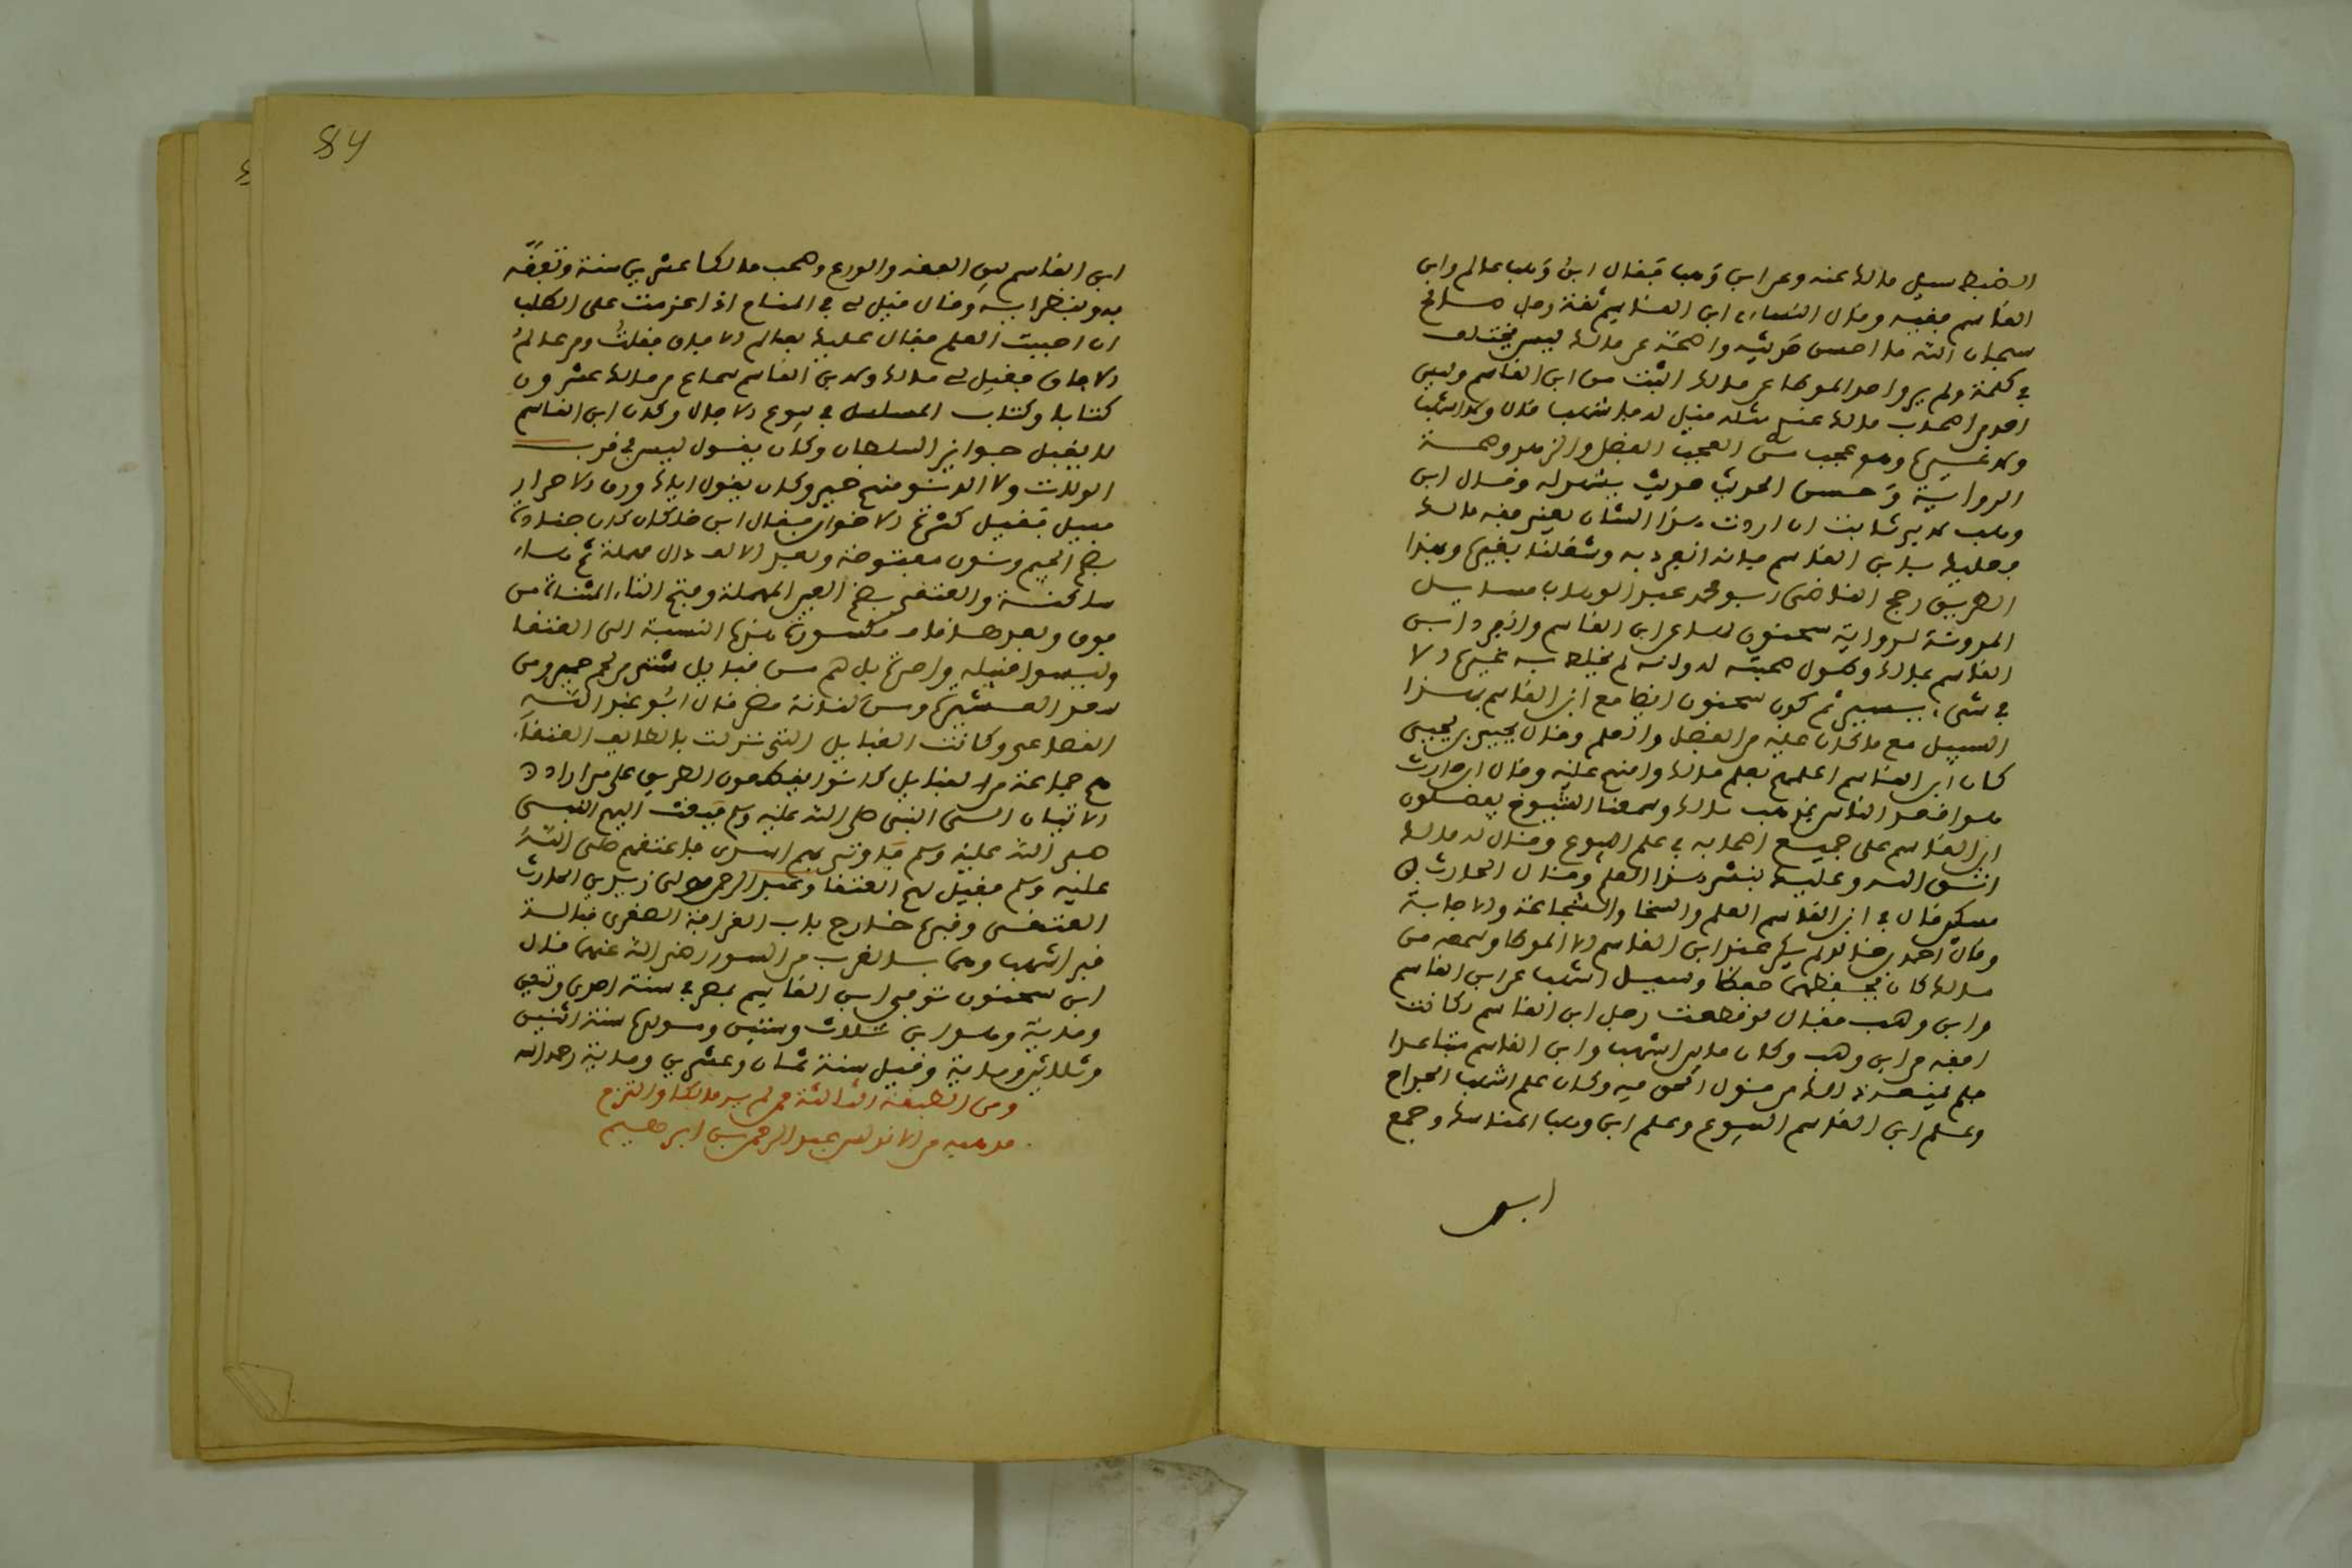 الضبط سيل مالك عنه وعن ابن وهب فقال ابن وهب عالم وابن
القاسم فقيه وقال النساءي ابن القاسم ثقة رجل صالح
سبحان الله ما احسن حديثه واصحه عن مالك ليس يختلف
في كلمة ولم يرو احد الموطا عن مالك اثبت من ابن القاسم وليس
احد من اصحاب مالك عندي مثله قيل له فاشهب قال ولا اشهب
ولا غيره وهو عجب من العجب الفضل والزهد وصحة
الرواية وحسن الحديث حديثه يشهد له وقال ابن
وهب لابي ثابت ان اردت هذا الشان يعني فقه مالك
فعليك بابن القاسم فانه انفرد به وشغلنا بغيره وبهذا
الطريق رجح القاضي ابو محمد عبد الوهاب مسايل
المدونة لرواية سحنون لها عن ابن القاسم وانفرد ابن
القاسم بمالك وطول صحبته له وانه لم يخلط به غيره الا
في شيء يسير ثم كون سحنون ايضا مع ابن القاسم بهذا
السبيل مع ما كان عليه من الفضل والعلم وقال يحيى بن يحيى
كان ابن القاسم اعلمهم بعلم مالك وامنهم عليه وقال ابن حارث
هو افقه الناس بمذهب مالك وسمعنا الشيوخ يفضلون
ابن القاسم على جميع اصحابه في علم البيوع وقال له مالك
اتق الله وعليك بنشر هذا العلم وقال الحارث بن
مسكين كان في ابن القاسم العلم والسخا والشجاعة والاجابة
وقال احمد بن خالد لم يكن عند ابن القاسم الا الموطا وسمعه من
مالك كان يحفظهما حفظا وسيل اشهب عن ابن القاسم
وابن وهب فقال لو قطعت رجل ابن القاسم لكانت
افقه من ابن وهب وكان ما بين اشهب وابن القاسم متباعدا
فلم يمنعه ذلك من قول الحق فيه وكان علم اشهب الجراح
وعلم ابن القاسم البيوع وعلم ابن وهب المناسك وجمع
ابن
84
ابن القاسم بين الفقه والورع وصحب مالكا عشرين سنة وتفقه
به وبنظرايه وقال قيل لي في المنام اذا عزمت على الطلب
ان احببت العلم فقال عليك بعالم الافاق فقلت ومن عالم
الافاق فقيل لي مالك ولابن القاسم سماع من مالك عشرون
كتابا وكتاب المسايل في بيوع الاجال وكان ابن القاسم
لا يقبل جوايز السلطان وكان يقول ليس في قرب
الولاة ولا الدنو منهم خير وكان يقول اياك ورق الاحرار
فسيل فقيل كثرة الاخوان فقال ابن خلكان كان جنادة
بضم الجيم ونون مفتوحة وبعد الالف دال مهملة ثم هاء
ساكنة والعتقي بضم العين المهملة وفتح التاء المثناة من
فوق وبعدها قاف مكسورة هذه النسبة الى العتقا
وليسوا قبيلة واحدة بل هم من قبايل شتى من حجر حمير ومن
سعد العشيرة ومن كنانة مضر قال ابو عبد الله
القضاعي وكانت القبايل التي نزلت بالطاهر العتقاء
هم جماعة من القبايل كانوا يقطعون الطريق على من اراد
الاتيان الى النبي صلى الله عليه وسلم فبعث اليهم النبي
صلى الله عليه وسلم فاوتي بهم اسرى فاعتقهم صلى الله
عليه وسلم فقيل لهم العتقا وعبد الرحمن مولى زبيد بن الحارث
العتقي وقبره خارج باب القرافة الصغرى قبالة
قبر اشهب وهما بالقرب من السور رضي الله عنهما قال
ابن سحنون توفي ابن القاسم بمصر في سنة احدى وتسعين
وماية وهو ابن ثلاث وستين ومولده سنة اثنين
وثلاثين وماية وقيل سنة ثمان وعشرين وماية رحمه الله
ومن الطبقة الثالثة ممن لم ير مالكا والتزم
مذهبه من الاندلس عبد الرحمن بن ابرهيم